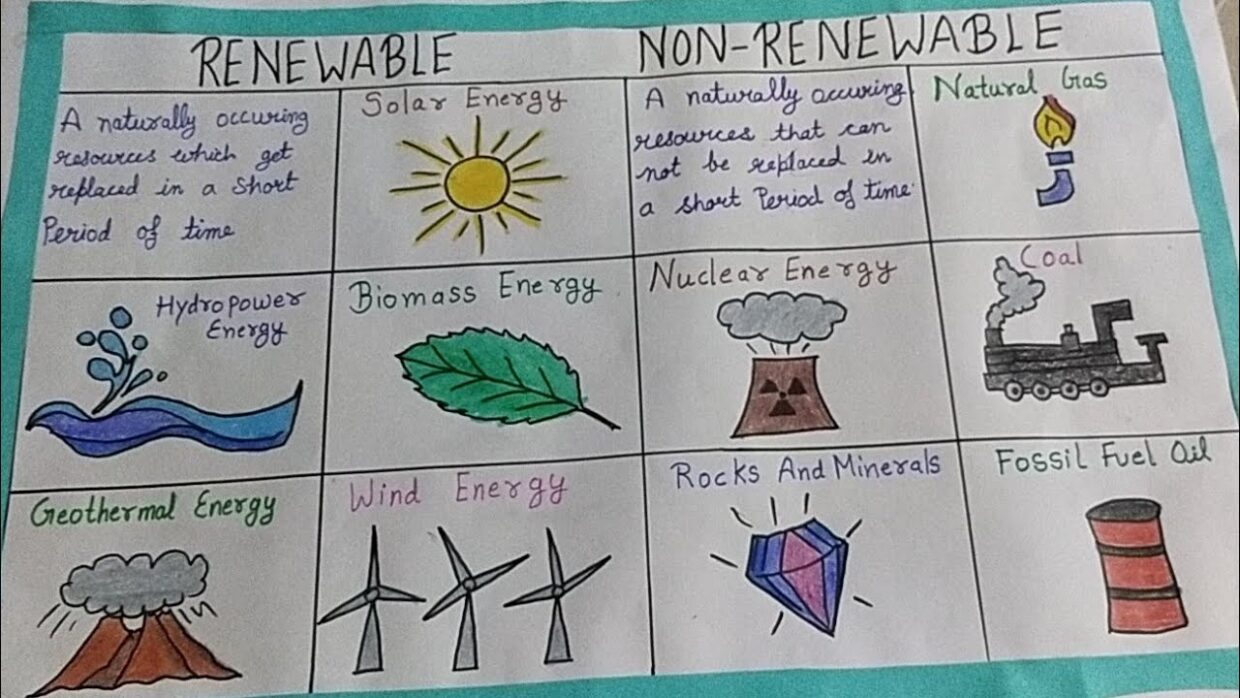 RENEWABLE
NON-RENEWABLE
A naturally occuring
resources which get
replaced in a short
Period of time
Solar Energy
A naturally occuring
resources that can
not be replaced in
a short Period of time.
Natural Gas
Hydropower
Energy
Biomass Energy
Nuclear Energy
Coal
Geothermal Energy
Wind Energy
Rocks And Minerals
Fossil Fuel Oil